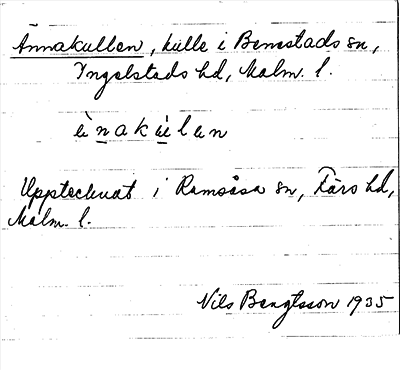 Ännakullen, kulle i Benestads sn,
Ingelstads hd, Malm. l.
ènakúlen
Upptecknat i Ramsåsa sn, Färs hd,
Malm. l.
Nils Bengtsson 1935